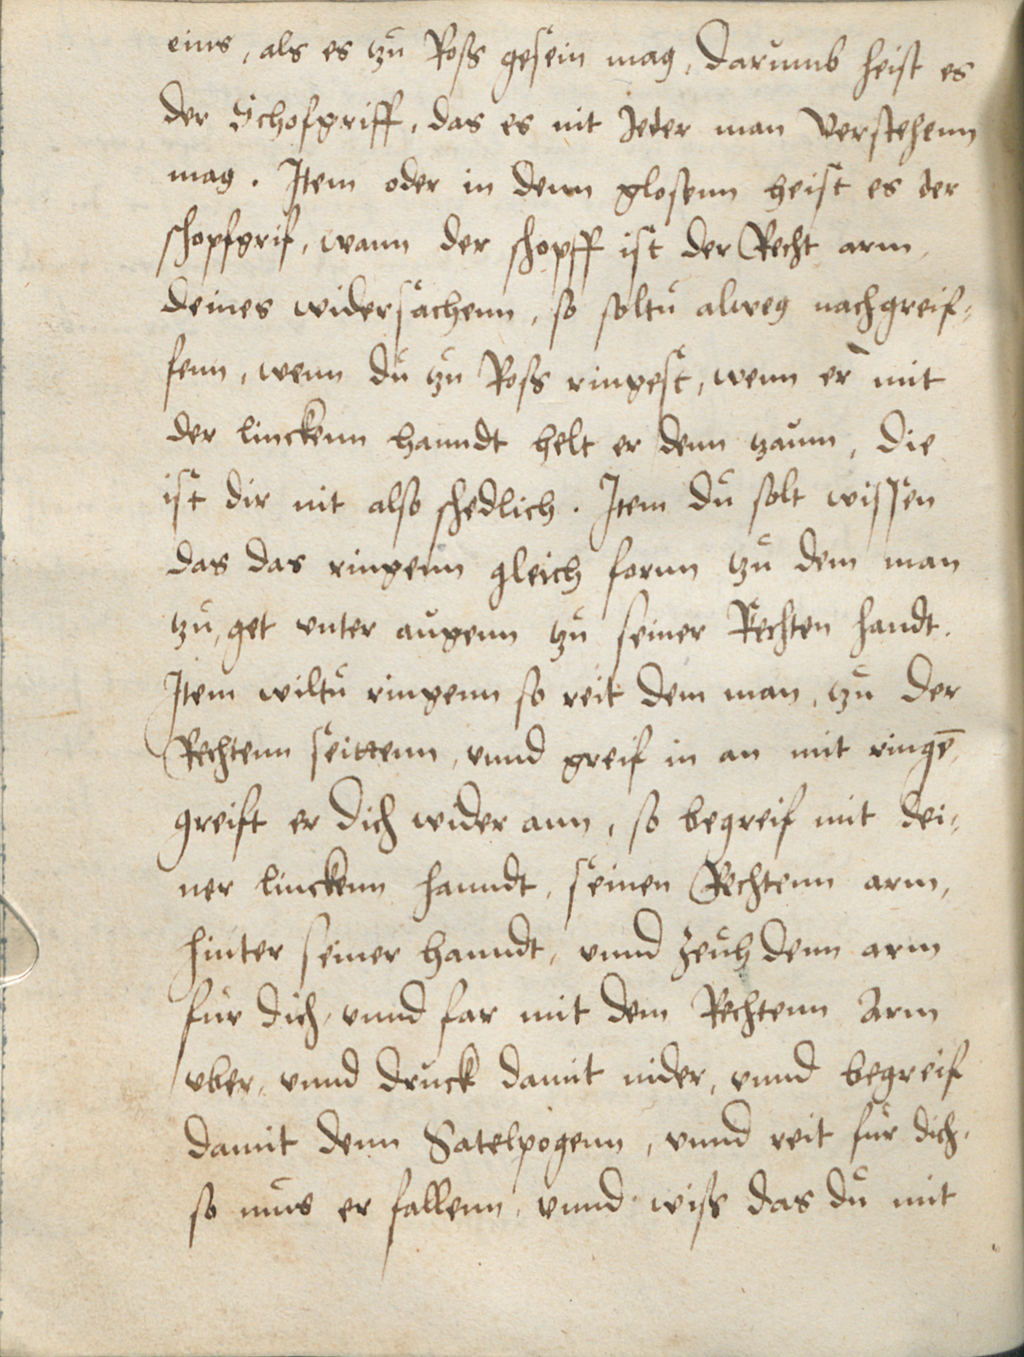 eins, als es tzu Ross gesein mag, Darumb heist es
der Schofgriff, das es nit Jeder man Verstehenn
mag. Item oder in denn glosenn heist es der
schopfgrif, wann der schopff ist der Recht arm,
deines widersachenn, so soltu alweg nachgreif-
fenn, wenn du tzu Ross ringest, wenn er mit
der linckenn hanndt helt er denn tzaum, die
ist dir nit also schedlich. Item du solt wissen
das das ringenn gleich fornn tzu dem man
tzu, get vnter augenn tzu seiner Rechten handt.
Item wiltu ringenn so reit dem man, tzu der
Rechtenn seittenn, vnnd greif in an mit ringē,
greift er dich wider ann, so begreif mit dei-
ner linckenn hanndt, seinen Rechtenn arm,
hinter seiner hanndt, vnnd zeuh denn arm
fur dich, vnnd far mit dem Rechtenn Arm
vber, vnnd druck damit nider, vnnd begreif
damit denn Satelpogenn, vnnd reit fur dich,
so mus er fallenn, vnnd wiss das du mit